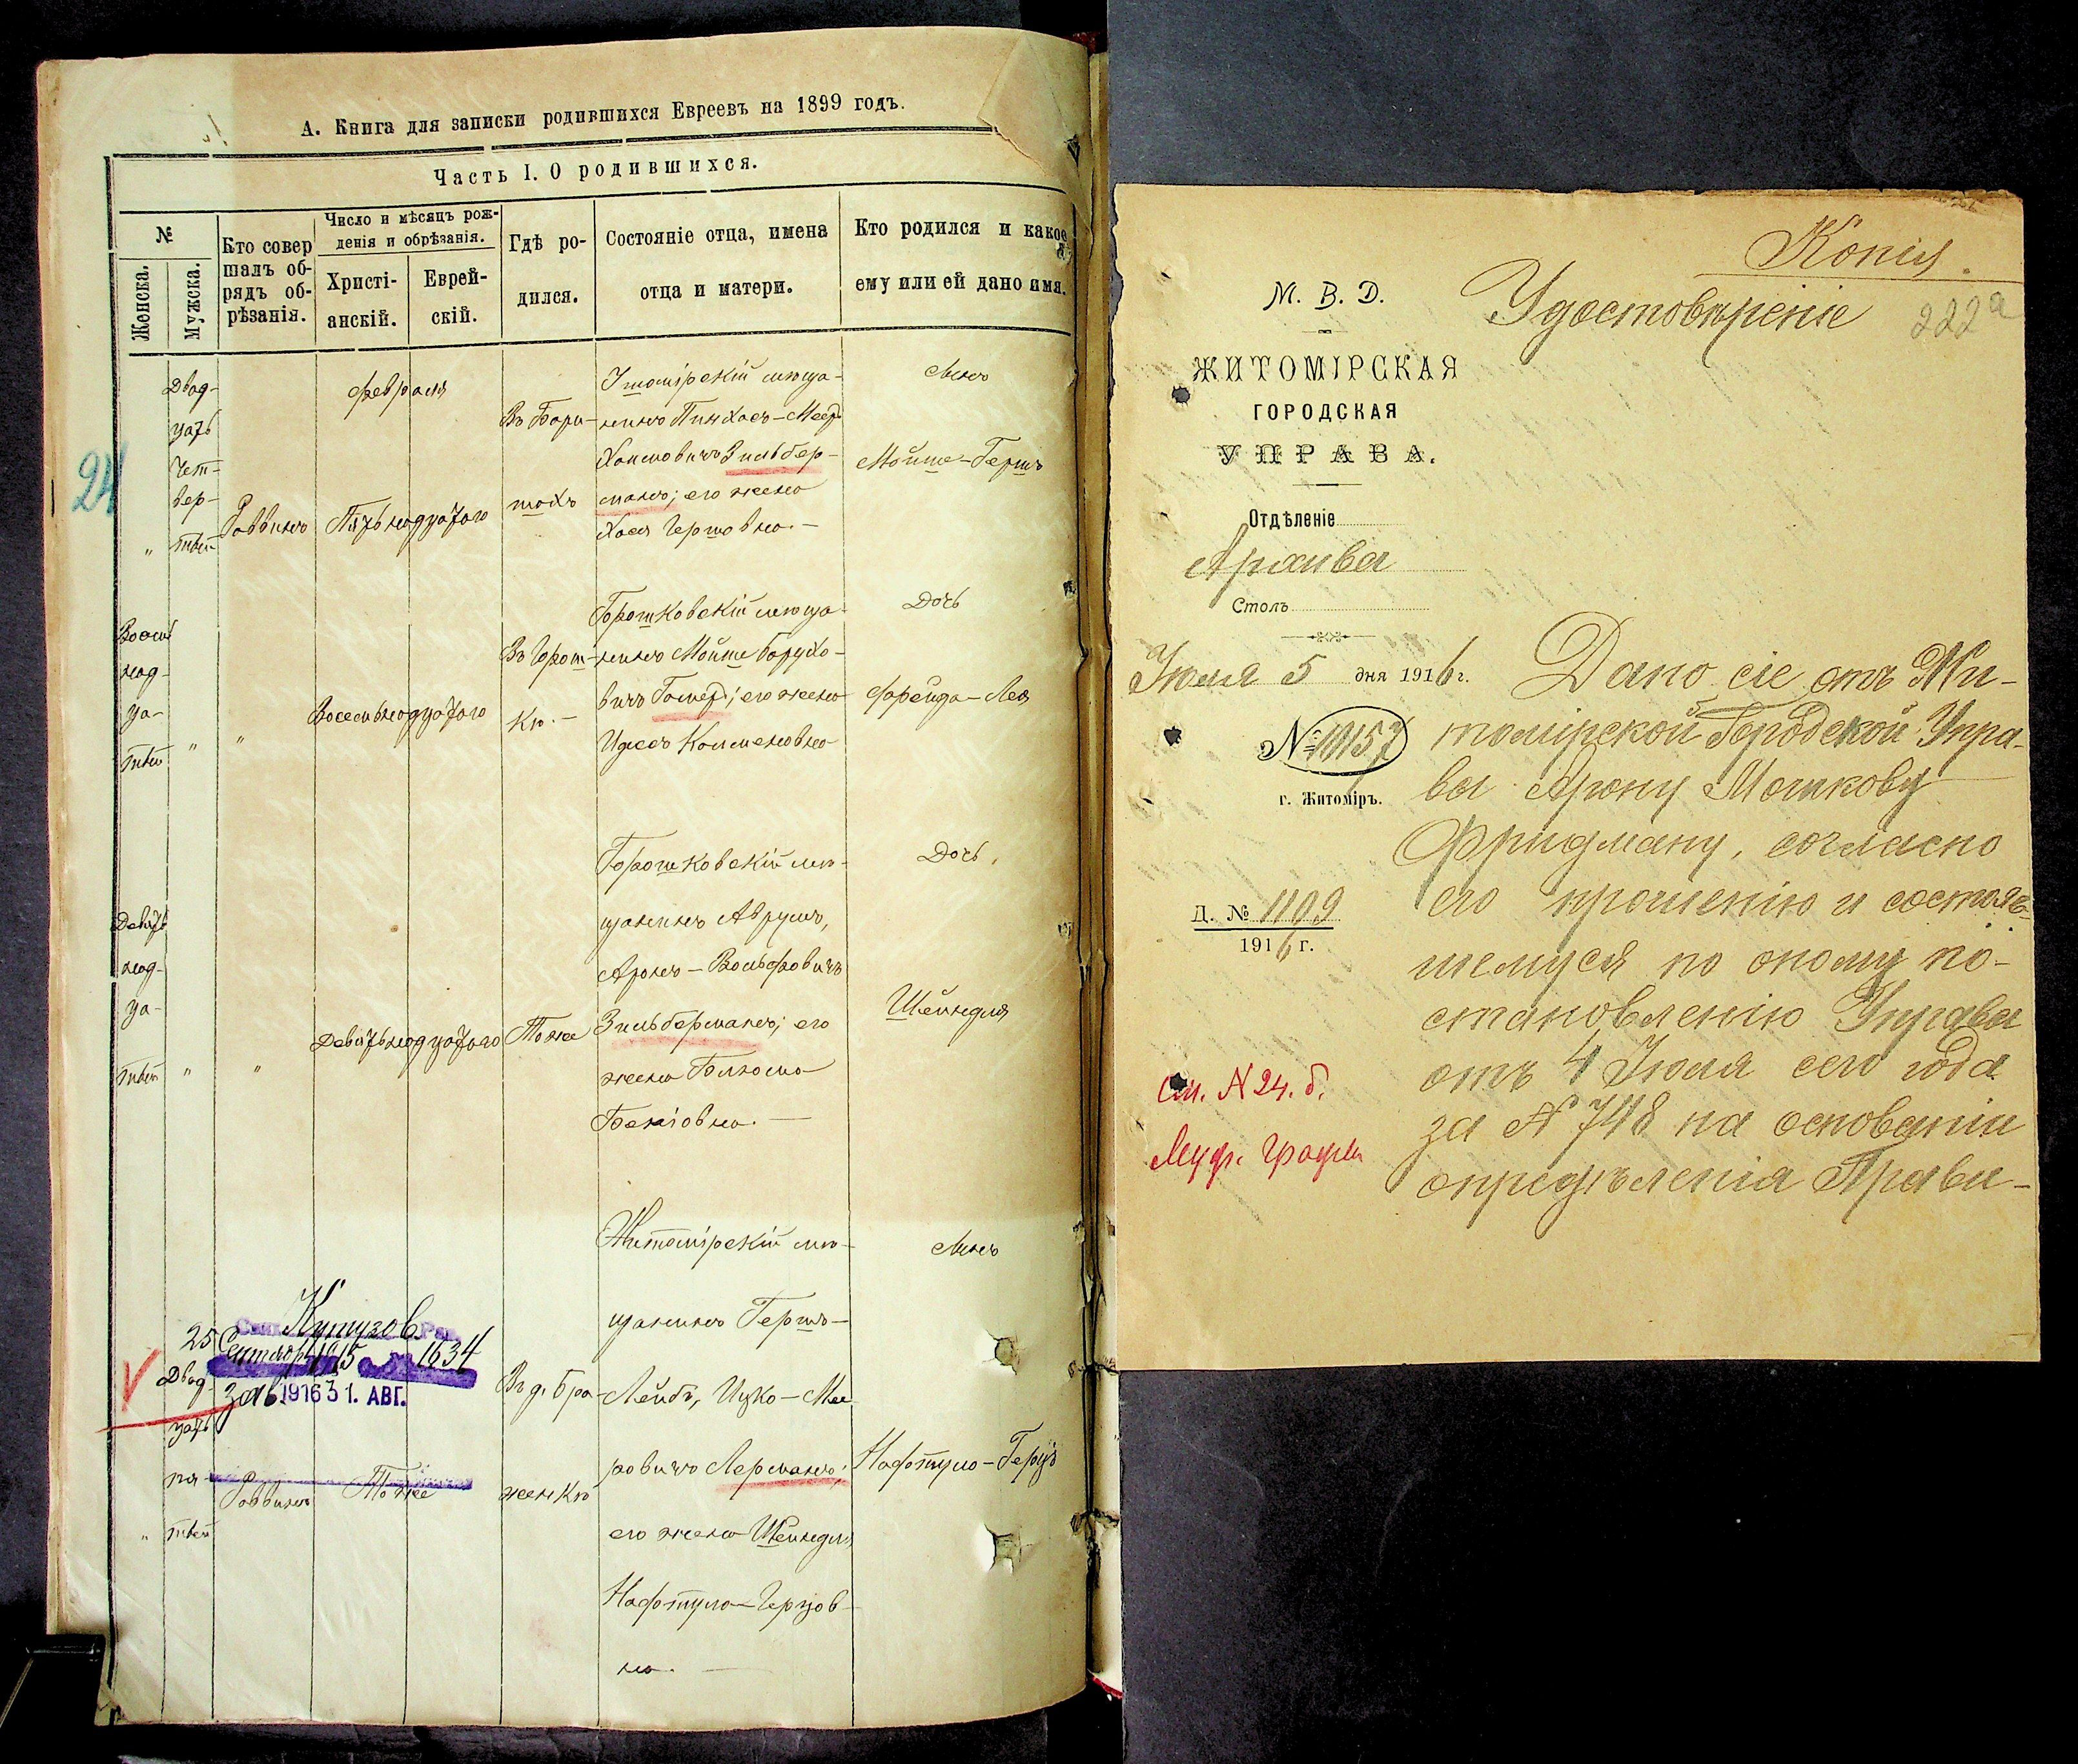 А. Книга для записки родившихся Евреевъ на 1899 годъ.
Часть I. О родившихся.
№
Женска.
Мужска.
Кто совер
шалъ об-
рядъ об-
рѣзанія.
Число и мѣсяцъ рож-
денія и обрѣзанія.
Христі-
анскій.
Еврей-
скій.
Гдѣ ро-
дился.
Состояніе отца, имена
отца и матери.
Кто родился и какое
ему или ей дано имя.
24
"
Двад-
цать
чет-
вер-
тый
Раввинъ
Февраля
Пятьнадцатого
Въ Бара-
шахъ
мѣща-
нинъ Пинхасъ-Меер
Хаимовичъ Зильбер-
манъ; его жена
Хая Гершовна. —
Сынъ
Мойше-Гершъ
Восемь
над-
ца-
тый
"
"
Восемьнадцатого
Въ Горош-
кѣ. —
Горошковскій мѣща-
нинъ Мойше Борухо-
вичъ ; его жена
Идесъ Колмановна
Дочь
Фрейда-Лея
Девять
над-
ца-
тый
"
"
Девятьнадцатого
Тоже
Горошковскій мѣ-
щанинъ Аврумъ,
Аронъ-Вольфовичъ
Зильберманъ; его
жена
Бенiовна. —
Дочь,
Шейндля
25
Двад-
цать
пя-
тый
"
Кутузов
Сентября 1915 1634
1916 31. АВГ.
Раввинъ
Тоже
Въ д. Бра-
женкѣ
Житомірскій мѣ-
щанинъ Гершъ-
Лейбъ, Ицко-Мее
ровичъ Лерманъ;
его жена Шейндля
Нафтула-Герцов-
на. —
Сынъ
Нафтула-Герцъ
Копія.
222а
М. В. Д.
Удостовѣреніе
ЖИТОМІРСКАЯ
ГОРОДСКАЯ
УПРАВА.
Отдѣленіе
Архива
Столъ
Июля 5 дня 1916 г.
№ 10157
г. Житоміръ.
Д. № 1199
1916 г.
См. № 24. б.
Муж. графы
Дано сіе отъ Жи-
томірской Городской Упра-
вы Арону Мошкову
Фридману, согласно
его прошенію и состояв-
шемуся по оному по-
становленію Управы
отъ 4 Июля сего года
за № 748 на основаніи
опредѣленія Прави-